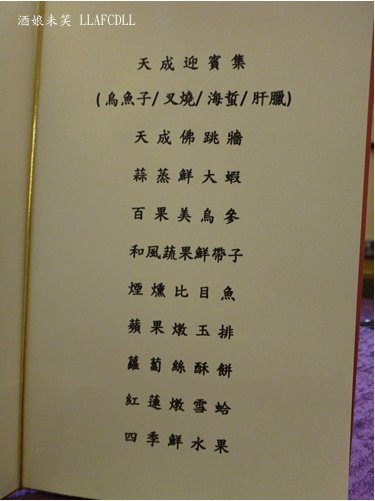 酒娘未笑 LLAFCDLL
天成迎賓集
(烏魚子/叉燒/海蜇/肝臘)
天成佛跳牆
蒜蒸鮮大蝦
百果美烏參
和風蔬果鮮帶子
煙燻比目魚
蘋果燉玉排
蘿蔔絲酥餅
紅蓮燉雪蛤
四季鮮水果